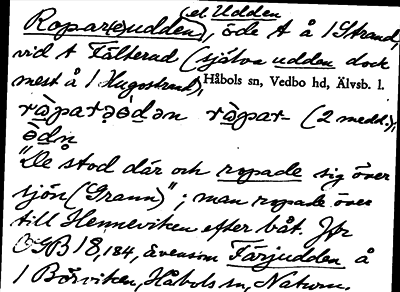 (el Udden
Ropar(e)udden), öde t å 1 Strand,
vid t Fälterud (själva udden dock
mest å 1 Hugostrand), Håbols sn, Vedbo hd, Älvsb. l.
ràparə̣ò́dən ràpar- (2 medd.),
ò̀dn̥
"De stod där och ropade sig över
sjön (Grann)"; man ropade över
till Henneviken efter båt. Jfr
OGB 18,184, ävensom Färjudden å
1 Börviken, Håbols sn, Naturn.